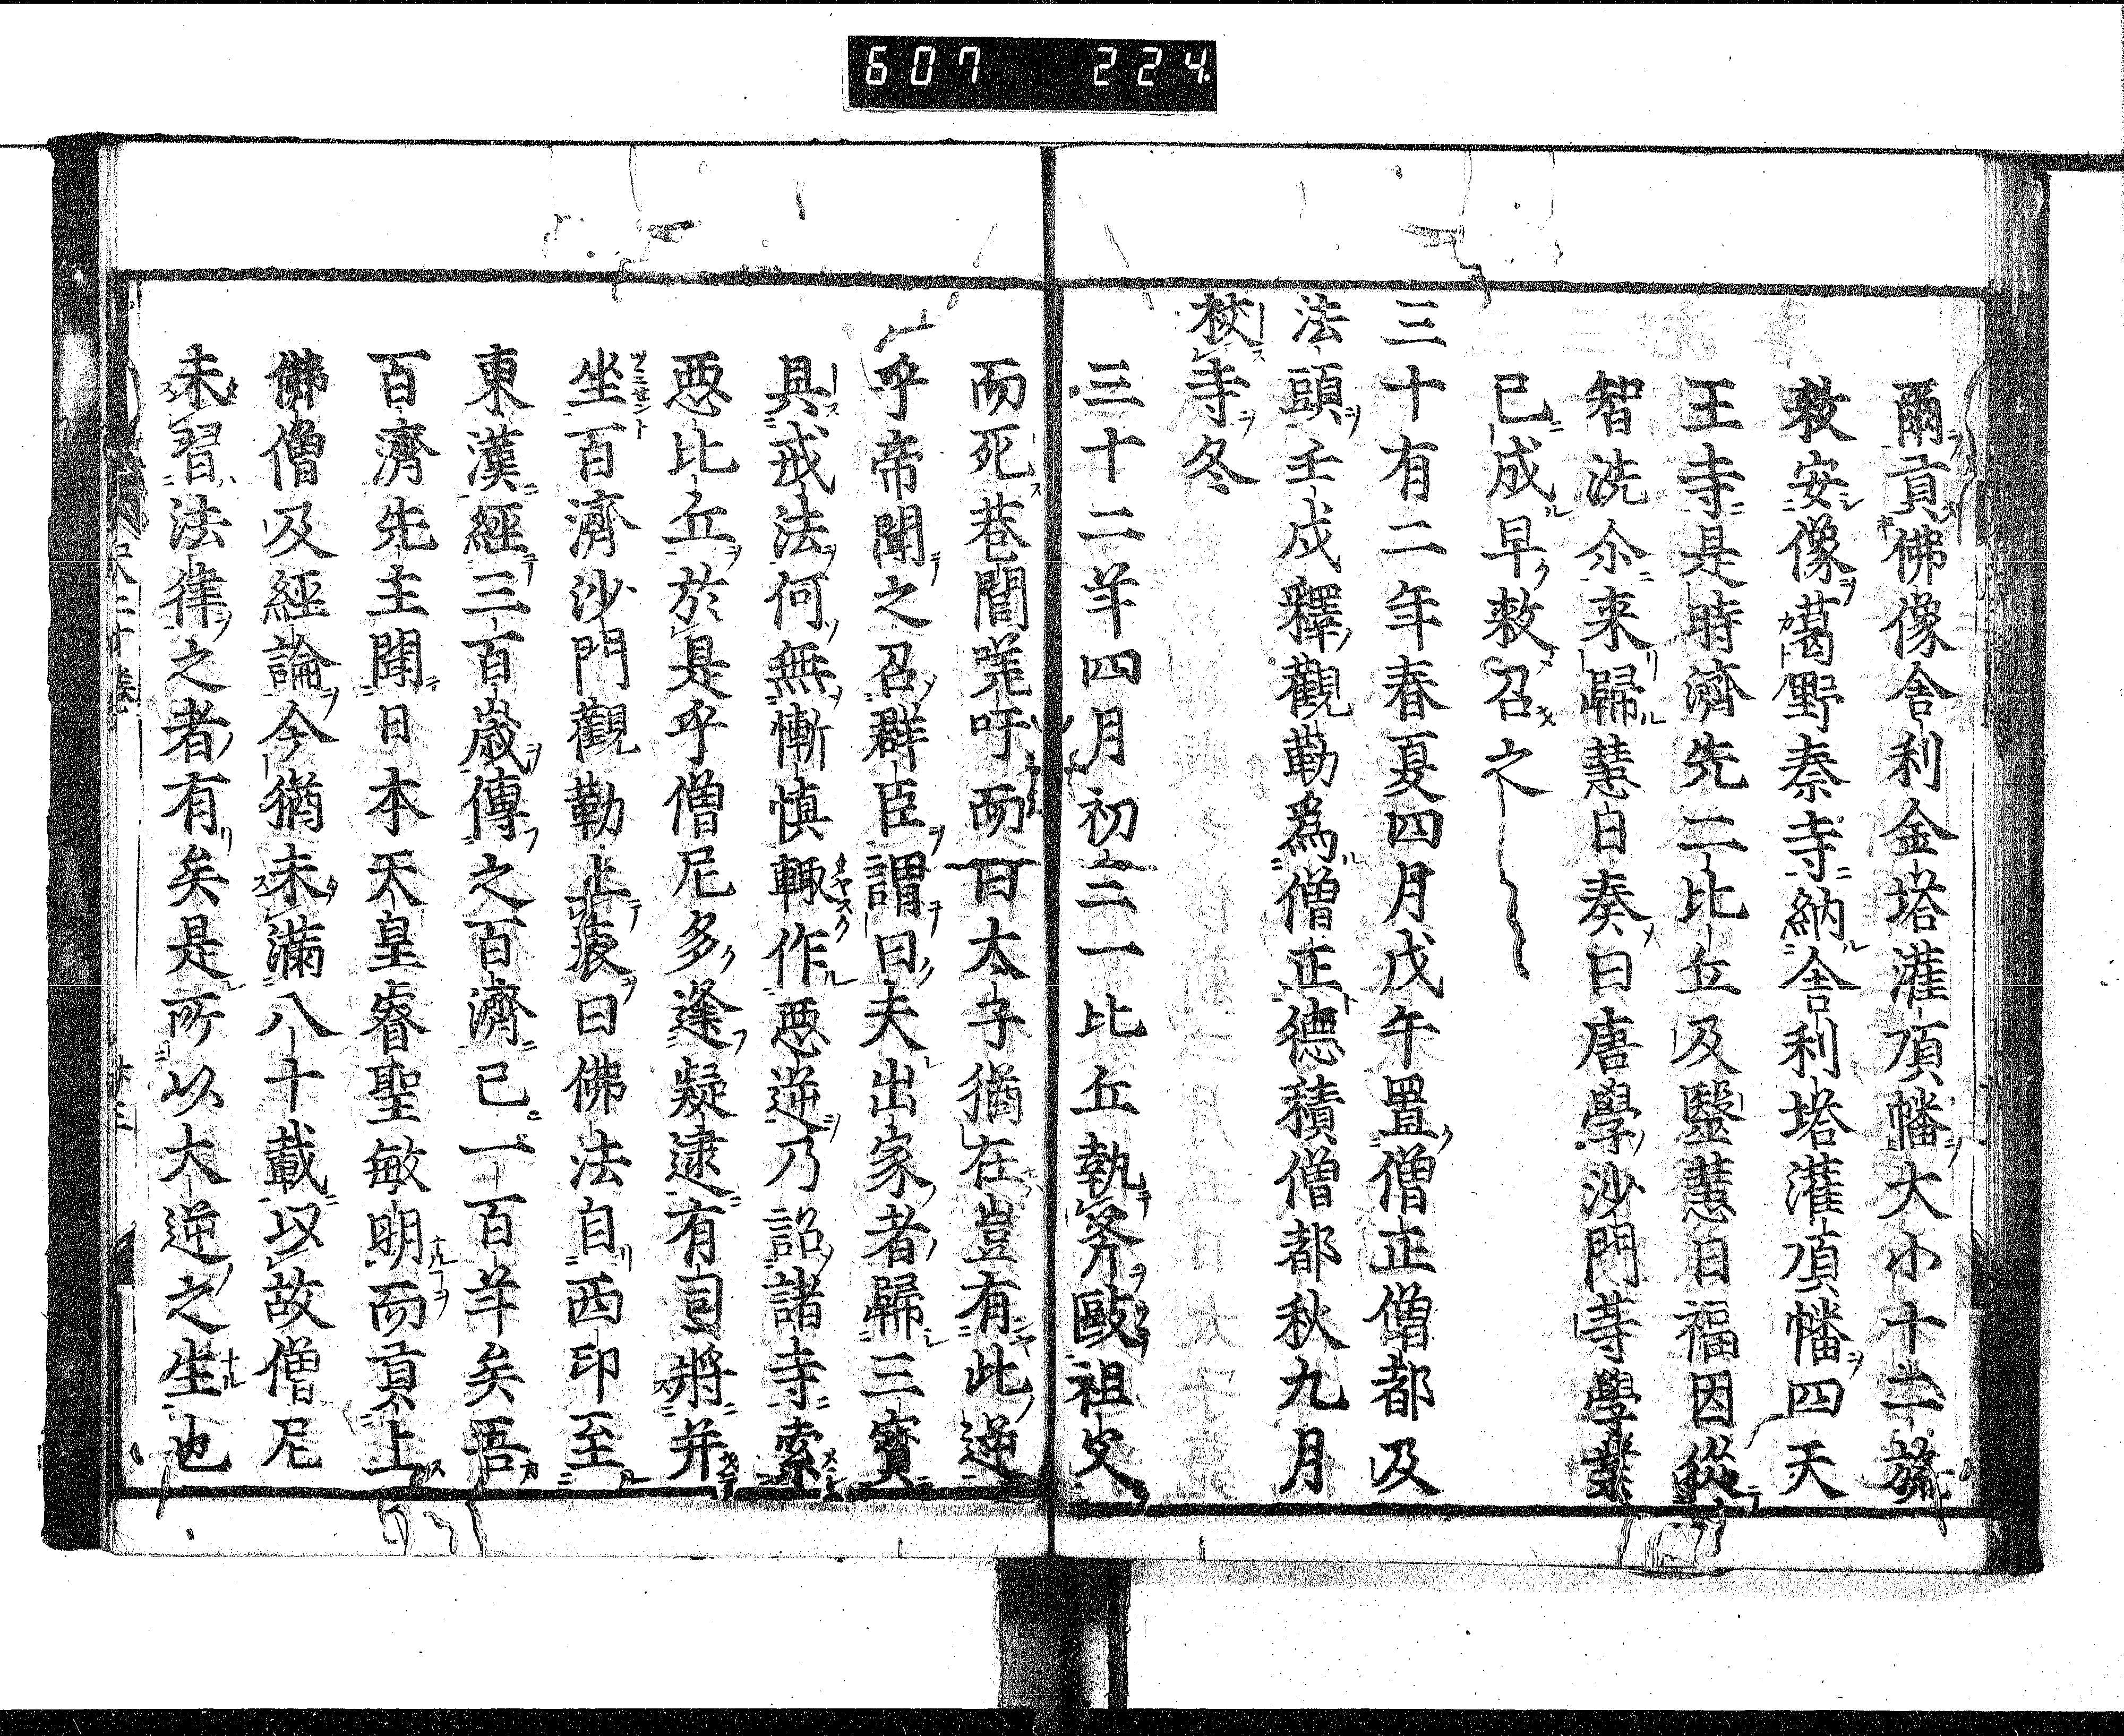 607 224.
爾貢佛像舍利金塔灌頂幡大小十二旒
敕安像葛野秦寺納舍利塔灌頂幡四天
王寺是時濟先二比丘及毉慧日福因從
智洗尒来歸慧日奏曰唐學沙門䓁學業
已成早敕召之
三十有二年春夏四月戊午置僧正僧都及
法頭壬戌釋觀勒爲僧正德積僧都秋九月
挍寺冬
三十二年四月初三一比丘執斧毆祖父
而死巷閭嗟吁而曰太子猶在豈有此逆
乎帝聞之召群臣謂曰夫出家者歸三寶
具戒法何無慚慎輙作惡逆乃詔諸寺索
惡比丘於是乎僧尼多逢疑逮有司將并
坐百濟沙門觀勒上表曰佛法自西印至
東漢經三百歳傳之百濟已一百年矣吾
百濟先主聞日本天皇睿聖敏明而貢上
佛僧及經論今猶未滿八十載以故僧尼
未習法律之者有矣是所以大逆之生也